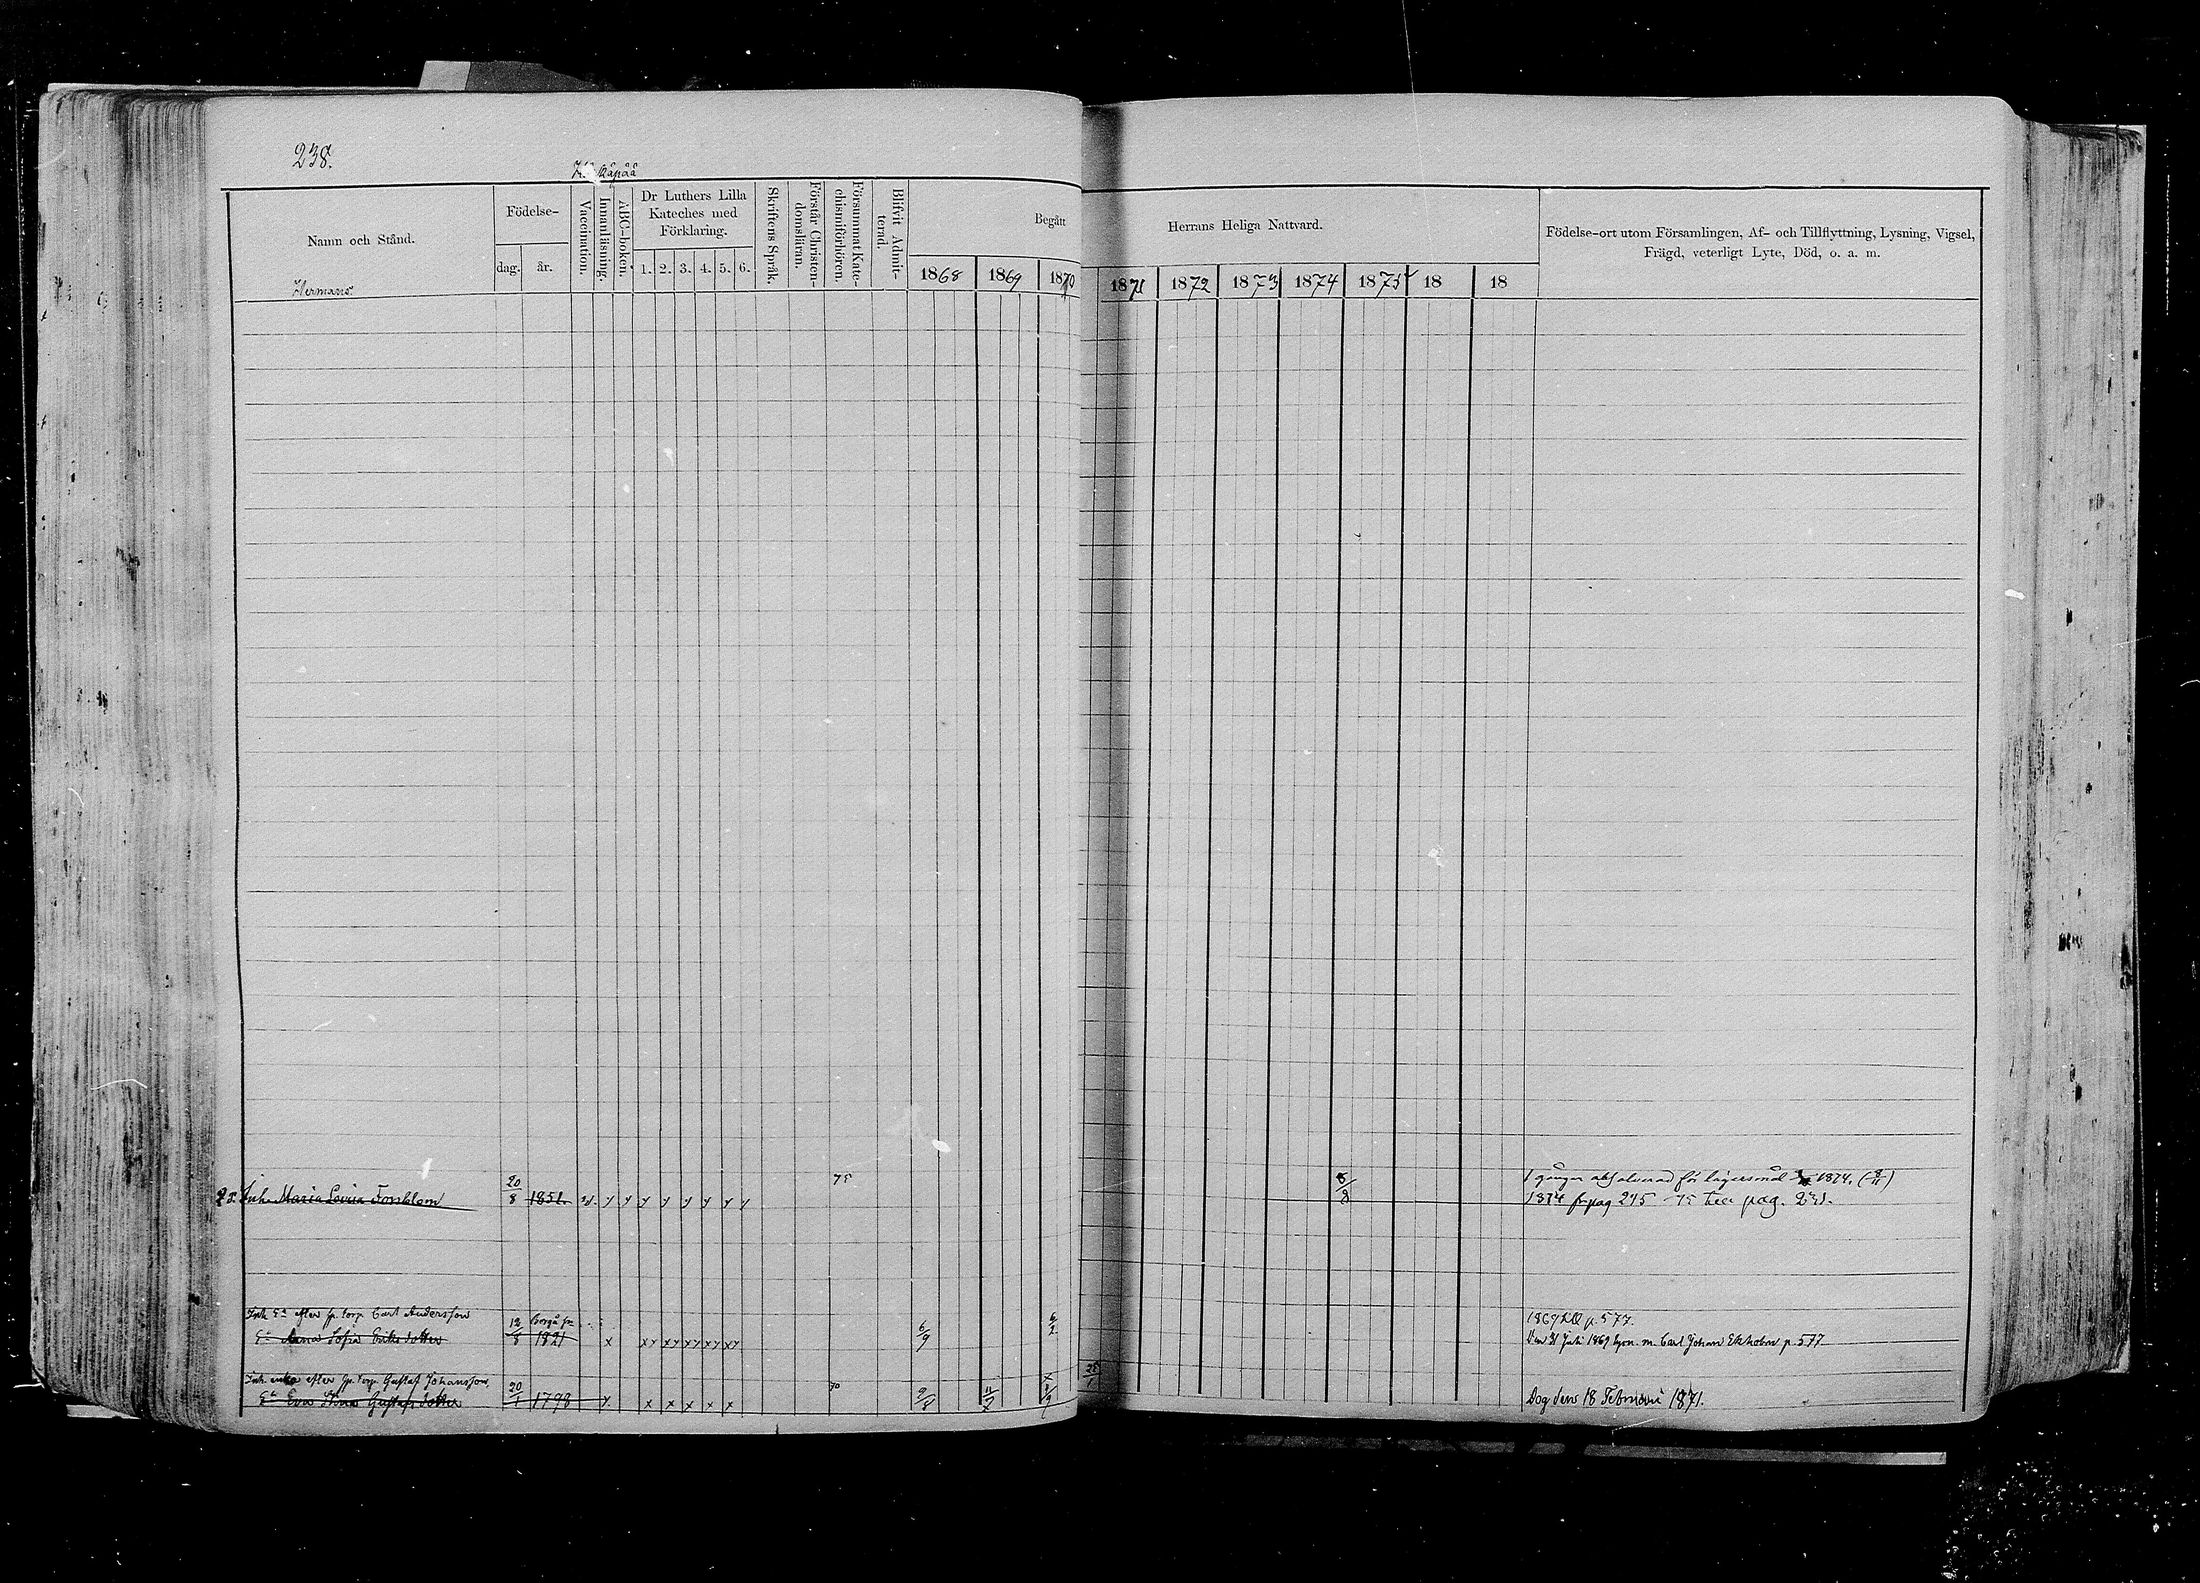 238.
Namn och Stånd.
Hermans.
Födelse-
dag. år.
Vaccination.
Innanläsning.
ABC-boken.
Dr Luthers Lilla
Kateches med
Förklaring.
1. 2. 3. 4. 5. 6.
Skriftens Språk.
Förstår Christen-
domsläran.
Försummat Kate-
chismiförhören.
Blifvit Admit-
terad.
Begått Herrans Heliga Nattvard.
1868 1869 1870 1871 1872 1873 1874 1875 18 18
Födelse-ort utom Församlingen, Af- och Tillflyttning, Lysning, Vigsel,
Frägd, veterligt Lyte, Död, o. a. m.
20 75 8 1 gånger absolverad för lägersmål 1874.
Inh. Maria Lovisa Forsblom 8 1851. y y y y y y y y 2 1874 fr pag 245 75 till pag. 231.
Inh. Ea efter fr. torp. Carl Andersson 12 Borgå 6 6 1869 till p. 577.
Ea Anna Sofia Eriksdotter 8 1821 x xy xy xy xy xy 9 2 Den 31 Juli 1869 lyst. m. Carl Johan Ekholm p. 577
Inh. enka efter fr. torp. Gustaf Johansson, 20 70 9 11 25
Ea Eva Stina Gustafsdotter 1 1798 x x x x x x 8 1 Dog den 18 Februari 1871.